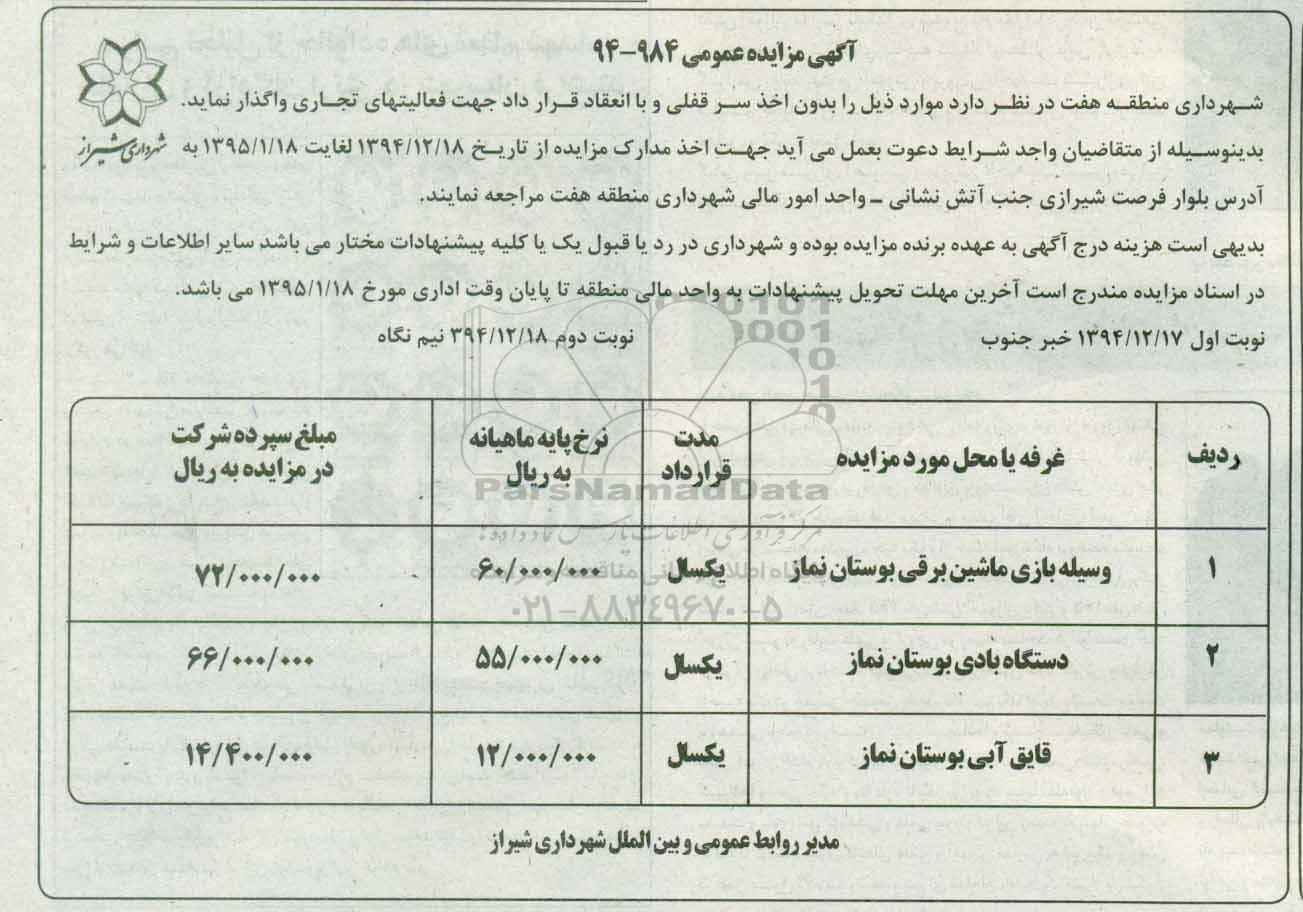 آگهی مزایده عمومی ۹۸۴-۹۴
شهرداری شیراز
شهرداری منطقه هفت در نظر دارد موارد ذیل را بدون اخذ سر قفلی و با انعقاد قرار داد جهت فعالیتهای تجاری واگذار نماید.
بدینوسیله از متقاضیان واجد شرایط دعوت بعمل می آید جهت اخذ مدارک مزایده از تاریخ ۱۳۹۴/۱۲/۱۸ لغایت ۱۳۹۵/۱/۱۸ به
آدرس بلوار فرصت شیرازی جنب آتش نشانی ـ واحد امور مالی شهرداری منطقه هفت مراجعه نمایند.
بدیهی است هزینه درج آگهی به عهده برنده مزایده بوده و شهرداری در رد یا قبول یک یا کلیه پیشنهادات مختار می باشد سایر اطلاعات و شرایط
در اسناد مزایده مندرج است آخرین مهلت تحویل پیشنهادات به واحد مالی منطقه تا پایان وقت اداری مورخ ۱۳۹۵/۱/۱۸ می باشد.
نوبت اول ۱۳۹۴/۱۲/۱۷ خبر جنوب نوبت دوم ۳۹۴/۱۲/۱۸ نیم نگاه
ردیف غرفه یا محل مورد مزایده مدت قرارداد نرخ پایه ماهیانه به ریال مبلغ سپرده شرکت در مزایده به ریال
۱ وسیله بازی ماشین برقی بوستان نماز یکسال ۶۰/۰۰۰/۰۰۰ ۷۲/۰۰۰/۰۰۰
۲ دستگاه بادی بوستان نماز یکسال ۵۵/۰۰۰/۰۰۰ ۶۶/۰۰۰/۰۰۰
۳ قایق آبی بوستان نماز یکسال ۱۲/۰۰۰/۰۰۰ ۱۴/۴۰۰/۰۰۰
مدیر روابط عمومی و بین الملل شهرداری شیراز
ParsNamadData
مرکز فرآوری اطلاعات پارس نماد داده ها
۰۲۱-۸۸۳۴۹۶۷۰-۵